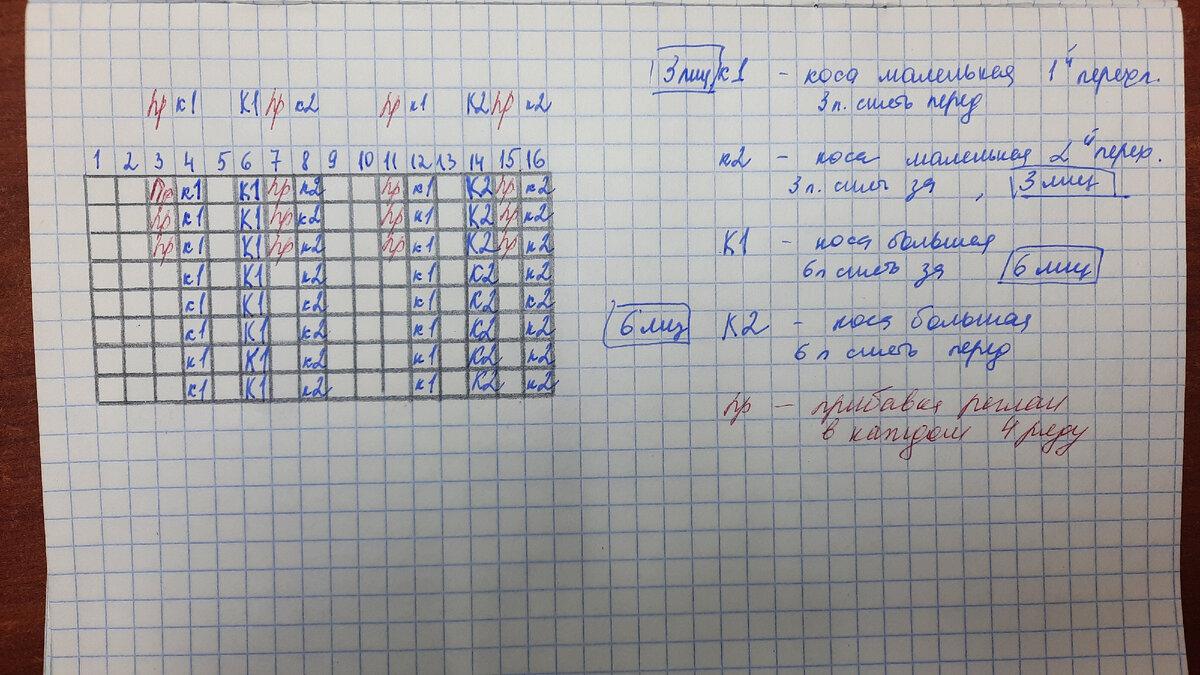 пр к1 К1 пр к2 пр к1 К2 пр к2
1 2 3 4 5 6 7 8 9 10 11 12 13 14 15 16
Пр к1 К1 пр к2 пр к1 К2 пр к2
пр к1 К1 пр к2 пр к1 К2 пр к2
пр к1 К1 пр к2 пр к1 К2 пр к2
к1 К1 к2 к1 К2 к2
к1 К1 к2 к1 К2 к2
к1 К1 к2 к1 К2 к2
к1 К1 к2 к1 К2 к2
к1 К1 к2 к1 К2 к2
3 лиц к1 - коса маленькая 1й перехл.
3 п. снять перед
к2 - коса маленькая 2й перех.
3 п. снять за , 3 лиц
К1 - коса большая
6 п снять за 6 лиц
6 лиц К2 - коса большая
6 п снять перед
пр - прибавка реглан
в каждом 4 ряду